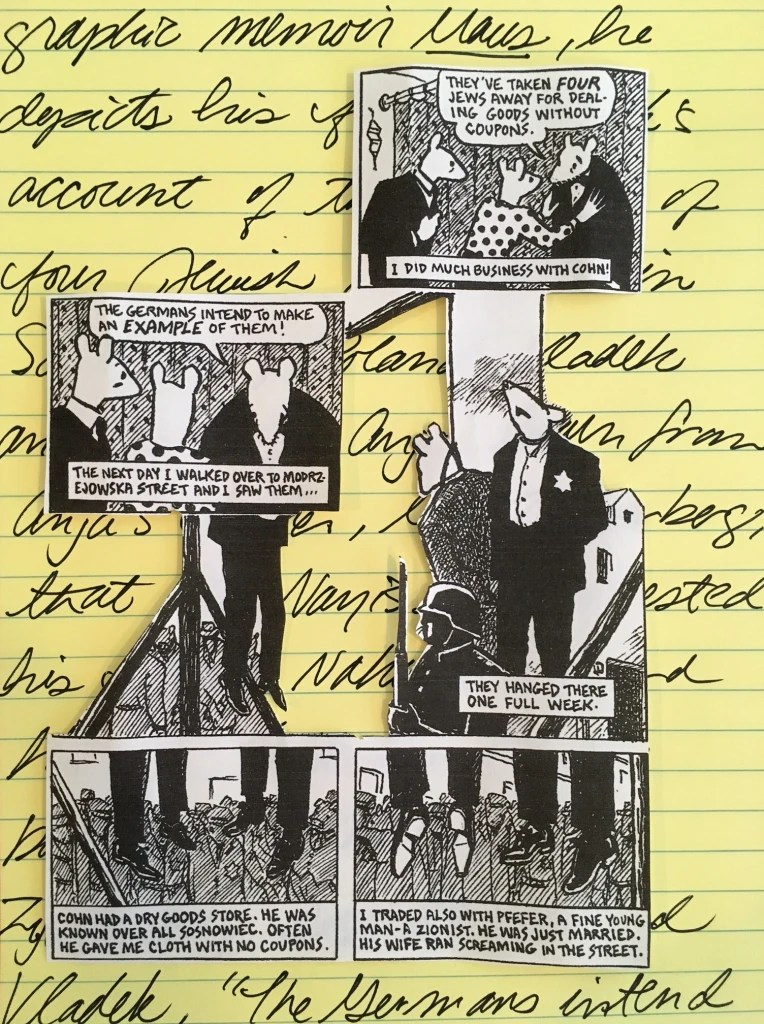 graphic memoir Maus, he
depicts his
account of of
four Jewish in
from
Anja's
that
his
Vladek, "The Germans intend
THEY'VE TAKEN FOUR
JEWS AWAY FOR DEAL-
ING GOODS WITHOUT
COUPONS.
I DID MUCH BUSINESS WITH COHN!
THE GERMANS INTEND TO MAKE
AN EXAMPLE OF THEM!
THE NEXT DAY I WALKED OVER TO MODRZ-
EJOWSKA STREET AND I SAW THEM...
THEY HANGED THERE
ONE FULL WEEK.
COHN HAD A DRY GOODS STORE. HE WAS
KNOWN OVER ALL SOSNOWIEC. OFTEN
HE GAVE ME CLOTH WITH NO COUPONS.
I TRADED ALSO WITH PFEFER, A FINE YOUNG
MAN-A ZIONIST. HE WAS JUST MARRIED.
HIS WIFE RAN SCREAMING IN THE STREET.